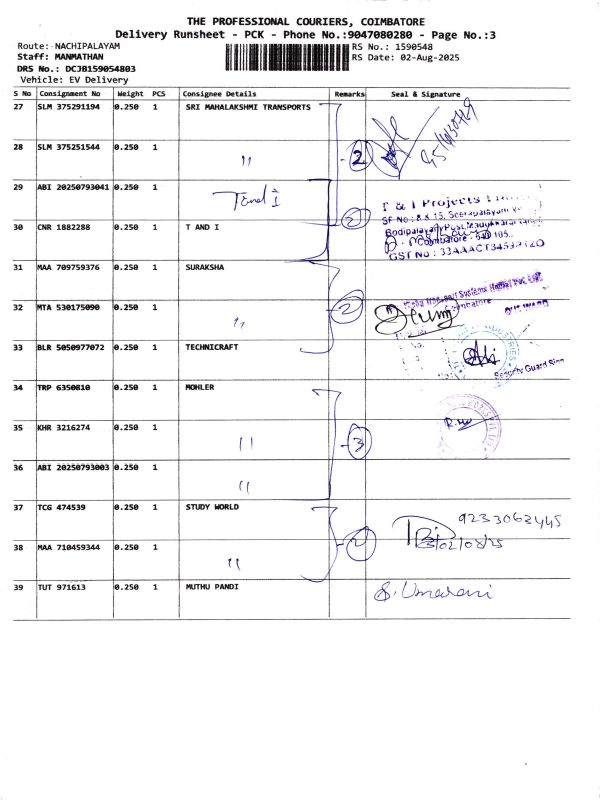 THE PROFESSIONAL COURIERS, COIMBATORE
Delivery Runsheet - PCK - Phone No.:9047080280 - Page No.:3
Route: NACHIPALAYAM
RS No.: 1590548
Staff: MANMATHAN
RS Date: 02-Aug-2025
DRS No.: DCJB159054803
Vehicle: EV Delivery
S No Consignment No Weight PCS Consignee Details Remarks Seal & Signature
27 SLM 375291194 0.250 1 SRI MAHALAKSHMI TRANSPORTS
28 SLM 375251544 0.250 1 " 2
29 ABI 20250793041 0.250 1 T and I
T & I Projects
30 CNR 1882288 0.250 1 T AND I 2
Coimbatore - 641 105.
31 MAA 709759376 0.250 1 SURAKSHA
32 MTA 530175090 0.250 1 " 2
Coimbatore
33 BLR 5050977072 0.250 1 TECHNICRAFT
Security Guard Sign
34 TRP 6350810 0.250 1 MOHLER
35 KHR 3216274 0.250 1 " 3
36 ABI 20250793003 0.250 1 "
37 TCG 474539 0.250 1 STUDY WORLD
9233062445
02/08/25
38 MAA 710459344 0.250 1 " 2
39 TUT 971613 0.250 1 MUTHU PANDI S. Umarani